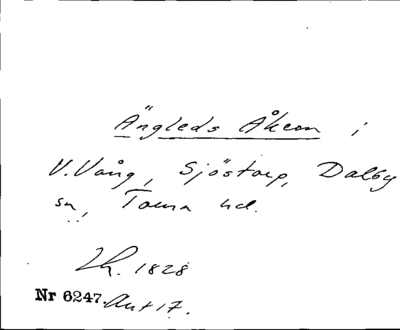 Ängleds Åkern i
V.Vång, Sjöstorp, Dalby
sn, Torna hd.
Lh. 1828
Nr 6247. Akt 17.